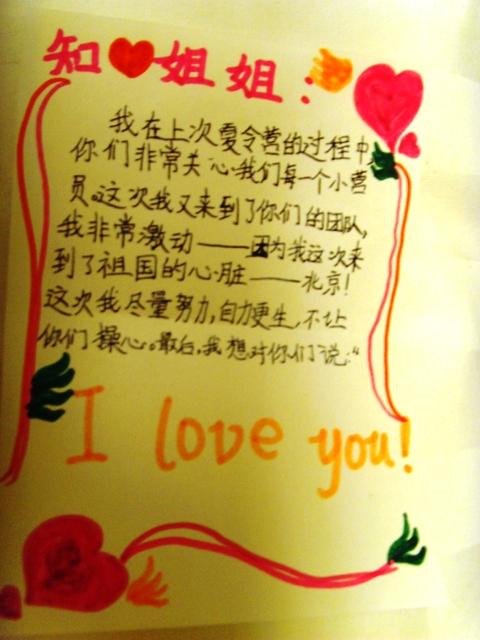 知❤姐姐：
我在上次夏令营的过程中
你们非常关心我们每一个小营
员。这次我又来到了你们的团队，
我非常激动——因为我这次来
到了祖国的心脏——北京！
这次我尽量努力，自力更生，不让
你们操心。最后，我想对你们说：“
I love you!